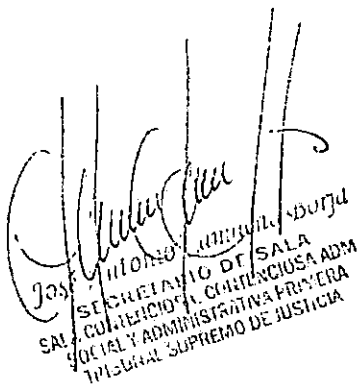 José Antonio Borja
SECRETARIO DE SALA
SALA CONTENCIOSA, CONTENCIOSA ADM
SOCIAL Y ADMINISTRATIVA PRIMERA
TRIBUNAL SUPREMO DE JUSTICIA